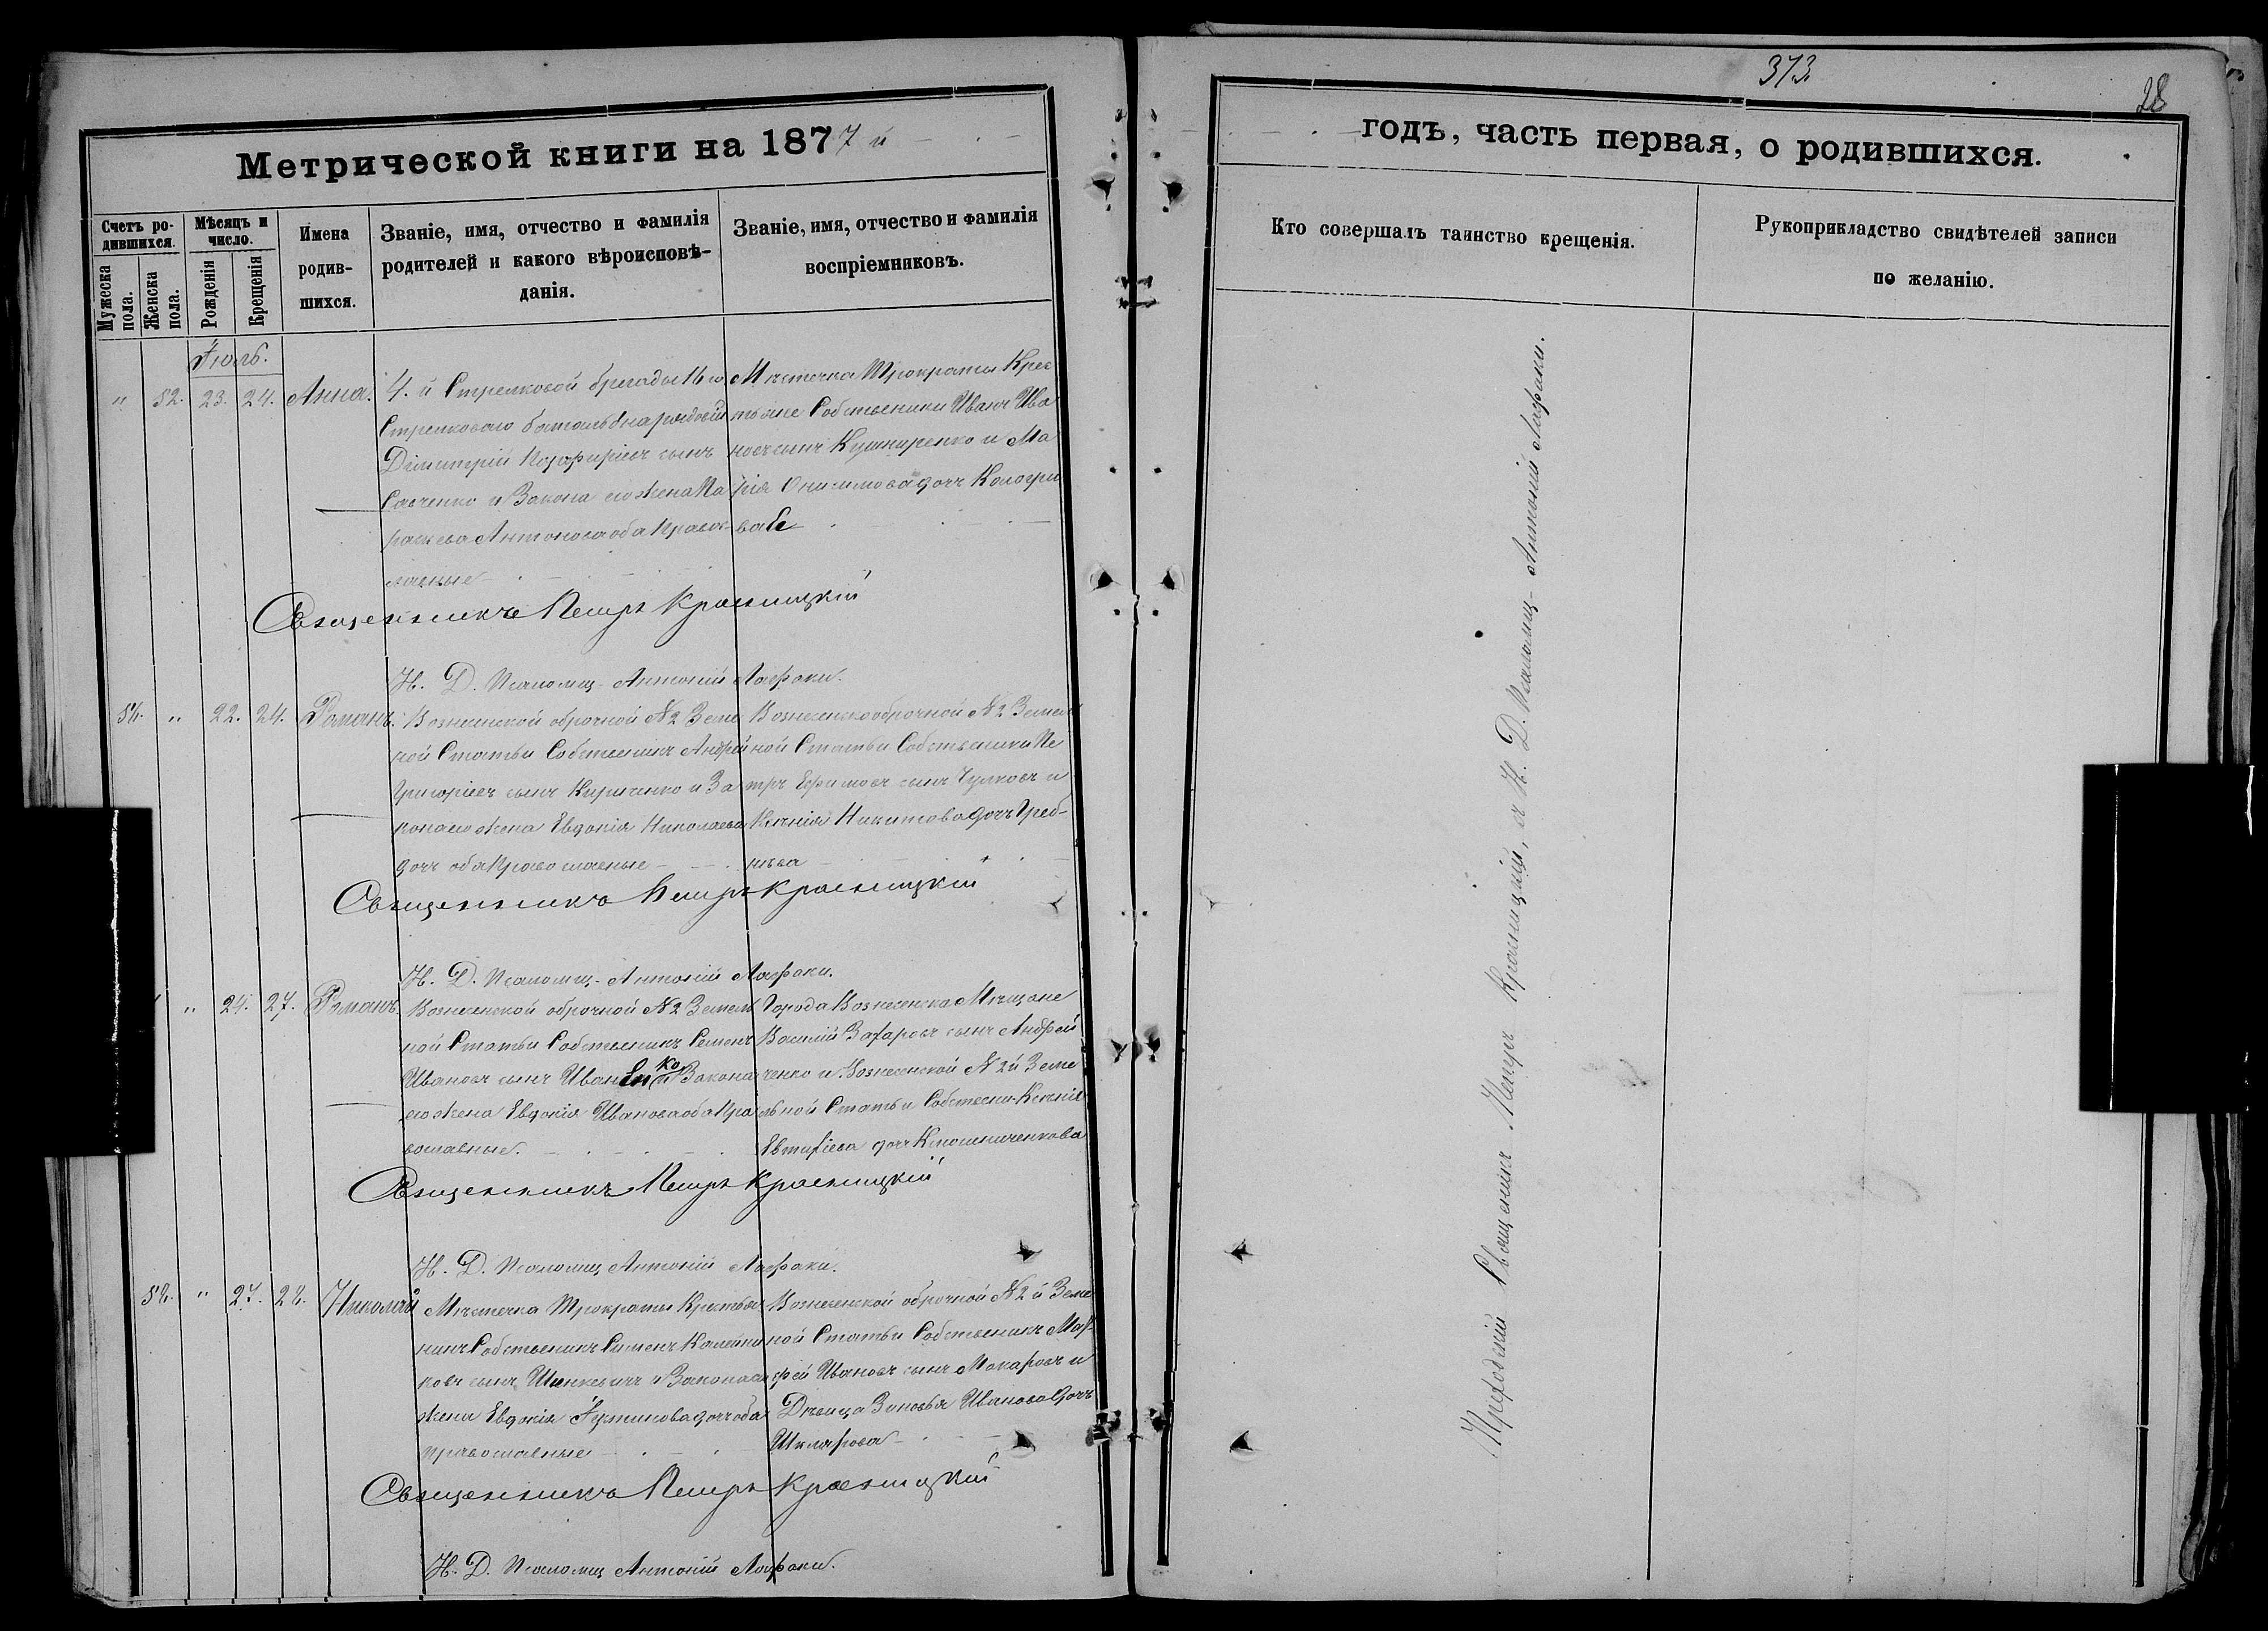 373
28
Метрической книги на 1877 й
годъ, часть первая, о родившихся.
Счетъ родившихся.
Мужеска пола.
Женска пола.
Мѣсяцъ и число.
Рожденія
Крещенія
Имена родившихся.
Званіе, имя, отчество и фамилія родителей и какого вѣроисповѣданія.
Званіе, имя, отчество и фамилія воспріемниковъ.
Кто совершалъ таинство крещенія.
Рукоприкладство свидѣтелей записи по желанію.
Іюль.
" 52. 23. 24. Анна.
4. й Стрелковой бригады 16 го
Стрелковаго баталіона рядовой
Димитрій Порфиріевъ сынъ
Савченко и Закона его жена Па
раскева Антонова оба Правос-
лавные
Мѣстечка Трикраты Крес
тьяне Собственники Иванъ Ива
новъ сынъ Кушниренко и Ма
рія Онисимова дочь
Священникъ Петръ Красницкій
Н. Д. Псаломщ. Антоній Лафаки.
56. " 22. 24. Романъ.
Вознесенской оброчной № 2 Земель
ной Статьи Собственникъ Андрей
Григоріевъ сынъ Кириченко и За
кона его жена Евдокія Николаева
дочь оба Православные
Вознесенской оброчной № 2 Земель
ной Статьи Собственники Пе
тръ Ефимовъ сынъ Чулковъ и
Ксенія Никитова дочь Греб-
нева
Священникъ Петръ Красницкій
Н. Д. Псаломщ. Антоній Лафаки.
" 24. 27. Романъ.
Вознесенской оброчной № 2 Земель
ной Статьи Собственникъ Семенъ
Ивановъ сынъ Иваненко и Закона
его жена Евдокія Иванова оба Пра
вославные.
Города Вознесенска Мѣщане
Василій Захаровъ сынъ Андрей
ченко и Вознесенской № 2 й Земе
льной Статьи Собственн. Ксенія
Евтихіева дочь
Священникъ Петръ Красницкій
Н. Д. Псаломщ. Антоній Лафаки.
58. " 27. 28. Николай
Мѣстечка Трикраты Крестья
нинъ Собственникъ Симеонъ Калени
ковъ сынъ Шинкевичъ и Закона его
жена Евдокія Іустинова дочь оба
православные
Вознесенской оброчной № 2 й Земель
ной Статьи Собственникъ Мат
фей Ивановъ сынъ Макаровъ и
Дѣвица Зиновья Иванова дочь
Шкларова
Священникъ Петръ Красницкій
Н. Д. Псаломщ. Антоній Лафаки.
Приходскій Священникъ Петръ Красницкій, съ Н. Д. Псаломщ. Антоній Лафаки.